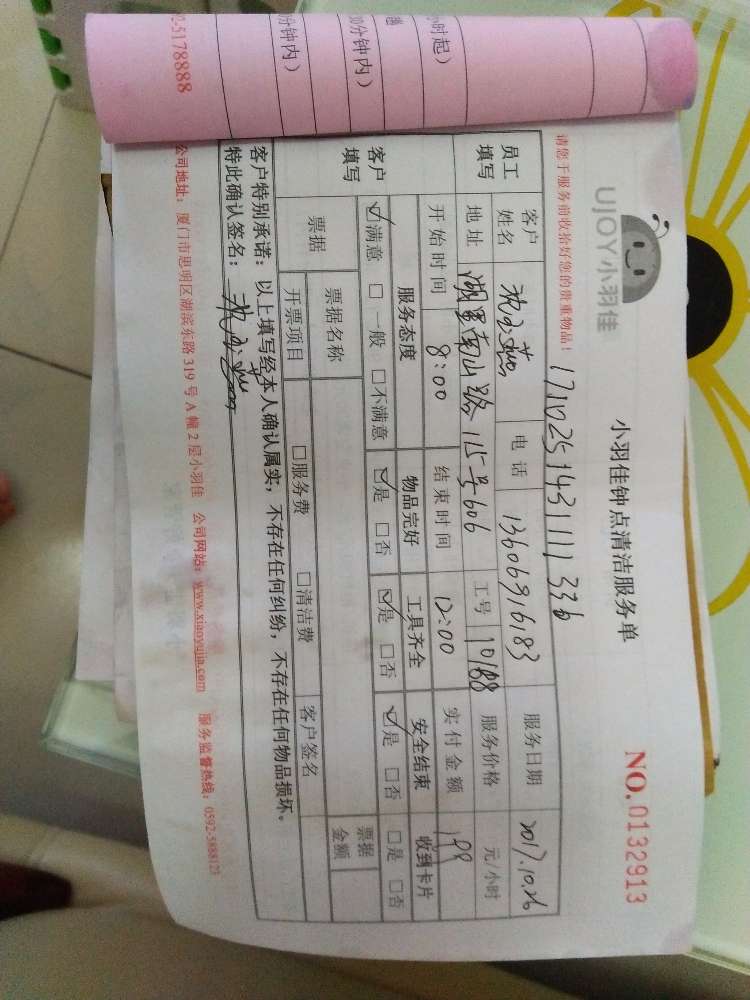 小时起）
0分钟内）
份钟内）
02-5178888
UJOY小羽佳
小羽佳钟点清洁服务单
NO.0132913
请您于服务前收拾好您的贵重物品！
171025143111133b
员工填写 客户姓名 电话 13606916183 服务日期 2017.10.26
地址 湖里南山路115号606 工号 10188 服务价格 元/小时
开始时间 8:00 结束时间 12:00 实付金额 198
客户填写 服务态度 物品完好 工具齐全 安全结束 收到卡片
☑满意 □一般 □不满意 ☑是 □否 ☑是 □否 ☑是 □否 □是 □否
票据 票据名称 客户签名 票据金额
开票项目 □服务费 □清洁费
客户特别承诺：以上填写经本人确认属实，不存在任何纠纷，不存在任何物品损坏。
特此确认签名：
公司地址：厦门市思明区湖滨东路319号A幢2层小羽佳 公司网站：www.xiaoyujia.com 服务监督热线：0592-5888123